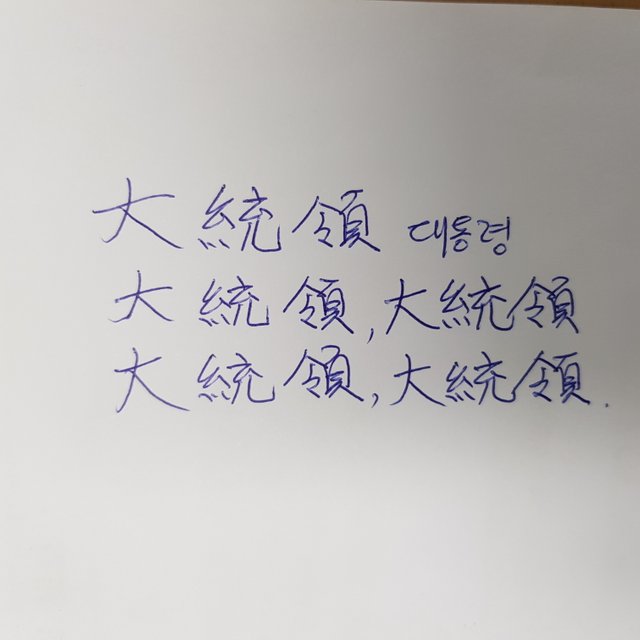 大統領 대통령
大統領, 大統領
大統領, 大統領.